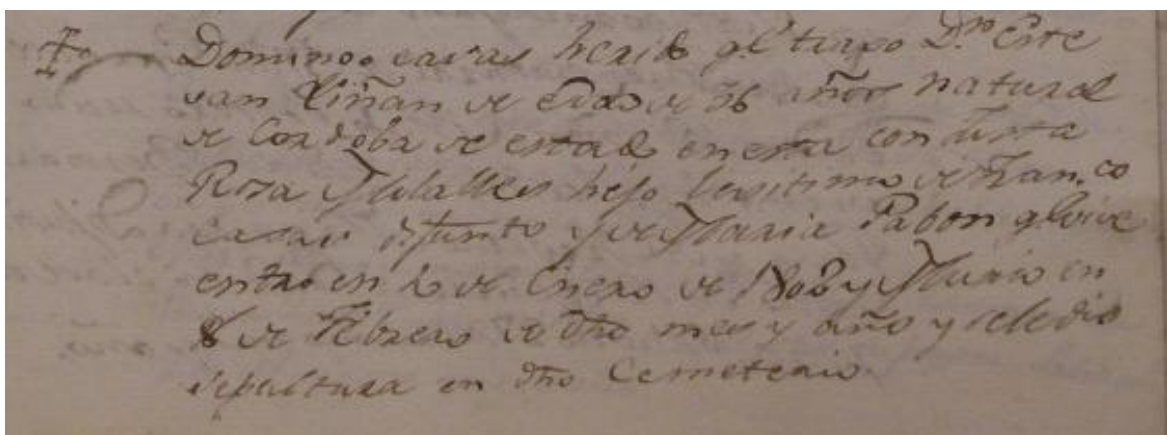 Domingo casas herido ql. trajo Dn. Este
van Liñan de edad de 36 años natural
de Cordoba de estado en esta con
Rosa hijo lexitimo de Fran.co
casas difunto y de Maria Pabon q. vive
entro en 2 de Enero de 1808 y Murio en
8 de Febrero de dho mes y año y se le dio
sepultura en dho Cementerio.